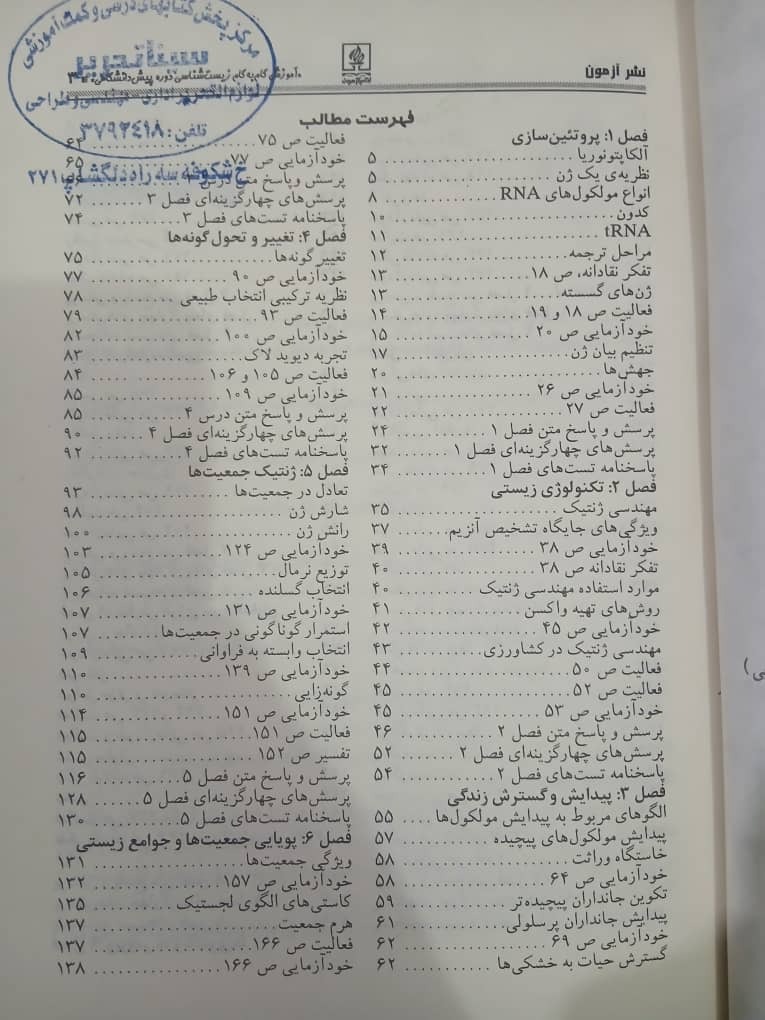 نشر آزمون
آموزش گام به گام زیست‌شناسی دوره پیش‌دانشگاهی
مرکز پخش کتابهای درسی و کمک آموزشی
سناتحریر
لوازم التحریر اداری - مهندسی و طراحی
تلفن: ۳۷۹۲۴۱۸
خ شکوفه سه راه دلگشا پ ۲۷۱
فهرست مطالب
فصل ۱: پروتئین‌سازی
آلکاپتونوریا ۵
نظریه‌ی یک ژن ۵
انواع مولکول‌های RNA ۸
کدون ۱۰
tRNA ۱۱
مراحل ترجمه ۱۲
تفکر نقادانه، ص ۱۸ ۱۳
ژن‌های گسسته ۱۳
فعالیت ص ۱۸ و ۱۹ ۱۴
خودآزمایی ص ۲۰ ۱۵
تنظیم بیان ژن ۱۷
جهش‌ها ۲۰
خودآزمایی ص ۲۶ ۲۱
فعالیت ص ۲۷ ۲۲
پرسش و پاسخ متن فصل ۱ ۲۴
پرسش‌های چهارگزینه‌ای فصل ۱ ۳۲
پاسخنامه تست‌های فصل ۱ ۳۴
فصل ۲: تکنولوژی زیستی
مهندسی ژنتیک ۳۵
ویژگی‌های جایگاه تشخیص آنزیم ۳۷
خودآزمایی ص ۳۸ ۳۹
تفکر نقادانه ص ۳۸ ۴۰
موارد استفاده مهندسی ژنتیک ۴۰
روش‌های تهیه واکسن ۴۱
خودآزمایی ص ۴۵ ۴۲
مهندسی ژنتیک در کشاورزی ۴۳
فعالیت ص ۵۰ ۴۴
فعالیت ص ۵۲ ۴۵
خودآزمایی ص ۵۳ ۴۵
پرسش و پاسخ متن فصل ۲ ۴۶
پرسش‌های چهارگزینه‌ای فصل ۲ ۵۲
پاسخنامه تست‌های فصل ۲ ۵۴
فصل ۳: پیدایش و گسترش زندگی
الگوهای مربوط به پیدایش مولکول‌ها ۵۵
پیدایش مولکول‌های پیچیده ۵۷
خاستگاه وراثت ۵۸
خودآزمایی ص ۶۴ ۵۸
تکوین جانداران پیچیده‌تر ۵۹
پیدایش جانداران پرسلولی ۶۱
خودآزمایی ص ۶۹ ۶۲
گسترش حیات به خشکی‌ها ۶۲
فعالیت ص ۷۵ ۶۴
خودآزمایی ص ۷۷ ۶۵
پرسش وپاسخ متن درس
پرسش‌های چهارگزینه‌ای فصل ۳ ۷۲
پاسخنامه تست‌های فصل ۳ ۷۴
فصل ۴: تغییر و تحول گونه‌ها
تغییر گونه‌ها ۷۵
خودآزمایی ص ۹۰ ۷۷
نظریه ترکیبی انتخاب طبیعی ۷۸
فعالیت ص ۹۳ ۷۹
خودآزمایی ص ۱۰۰ ۸۲
تجربه دیوید لاک ۸۳
فعالیت ص ۱۰۵ و ۱۰۶ ۸۴
خودآزمایی ص ۱۰۹ ۸۵
پرسش و پاسخ متن درس ۴ ۸۵
پرسش‌های چهارگزینه‌ای فصل ۴ ۹۰
پاسخنامه تست‌های فصل ۴ ۹۲
فصل ۵: ژنتیک جمعیت‌ها
تعادل در جمعیت‌ها ۹۳
شارش ژن ۹۸
رانش ژن ۱۰۰
خودآزمایی ص ۱۲۴ ۱۰۳
توزیع نرمال ۱۰۵
انتخاب گسلنده ۱۰۶
خودآزمایی ص ۱۳۱ ۱۰۷
استمرار گوناگونی در جمعیت‌ها ۱۰۷
انتخاب وابسته به فراوانی ۱۰۹
خودآزمایی ص ۱۳۹ ۱۱۰
گونه‌زایی ۱۱۰
خودآزمایی ص ۱۵۱ ۱۱۴
فعالیت ص ۱۵۱ ۱۱۵
تفسیر ص ۱۵۲ ۱۱۵
پرسش و پاسخ متن فصل ۵ ۱۱۶
پرسش‌های چهارگزینه‌ای فصل ۵ ۱۲۸
پاسخنامه تست‌های فصل ۵ ۱۳۰
فصل ۶: پویایی جمعیت‌ها و جوامع زیستی
ویژگی جمعیت‌ها ۱۳۱
خودآزمایی ص ۱۵۷ ۱۳۲
کاستی‌های الگوی لجستیک ۱۳۵
هرم جمعیت ۱۳۷
فعالیت ص ۱۶۶ ۱۳۷
خودآزمایی ص ۱۶۶ ۱۳۸